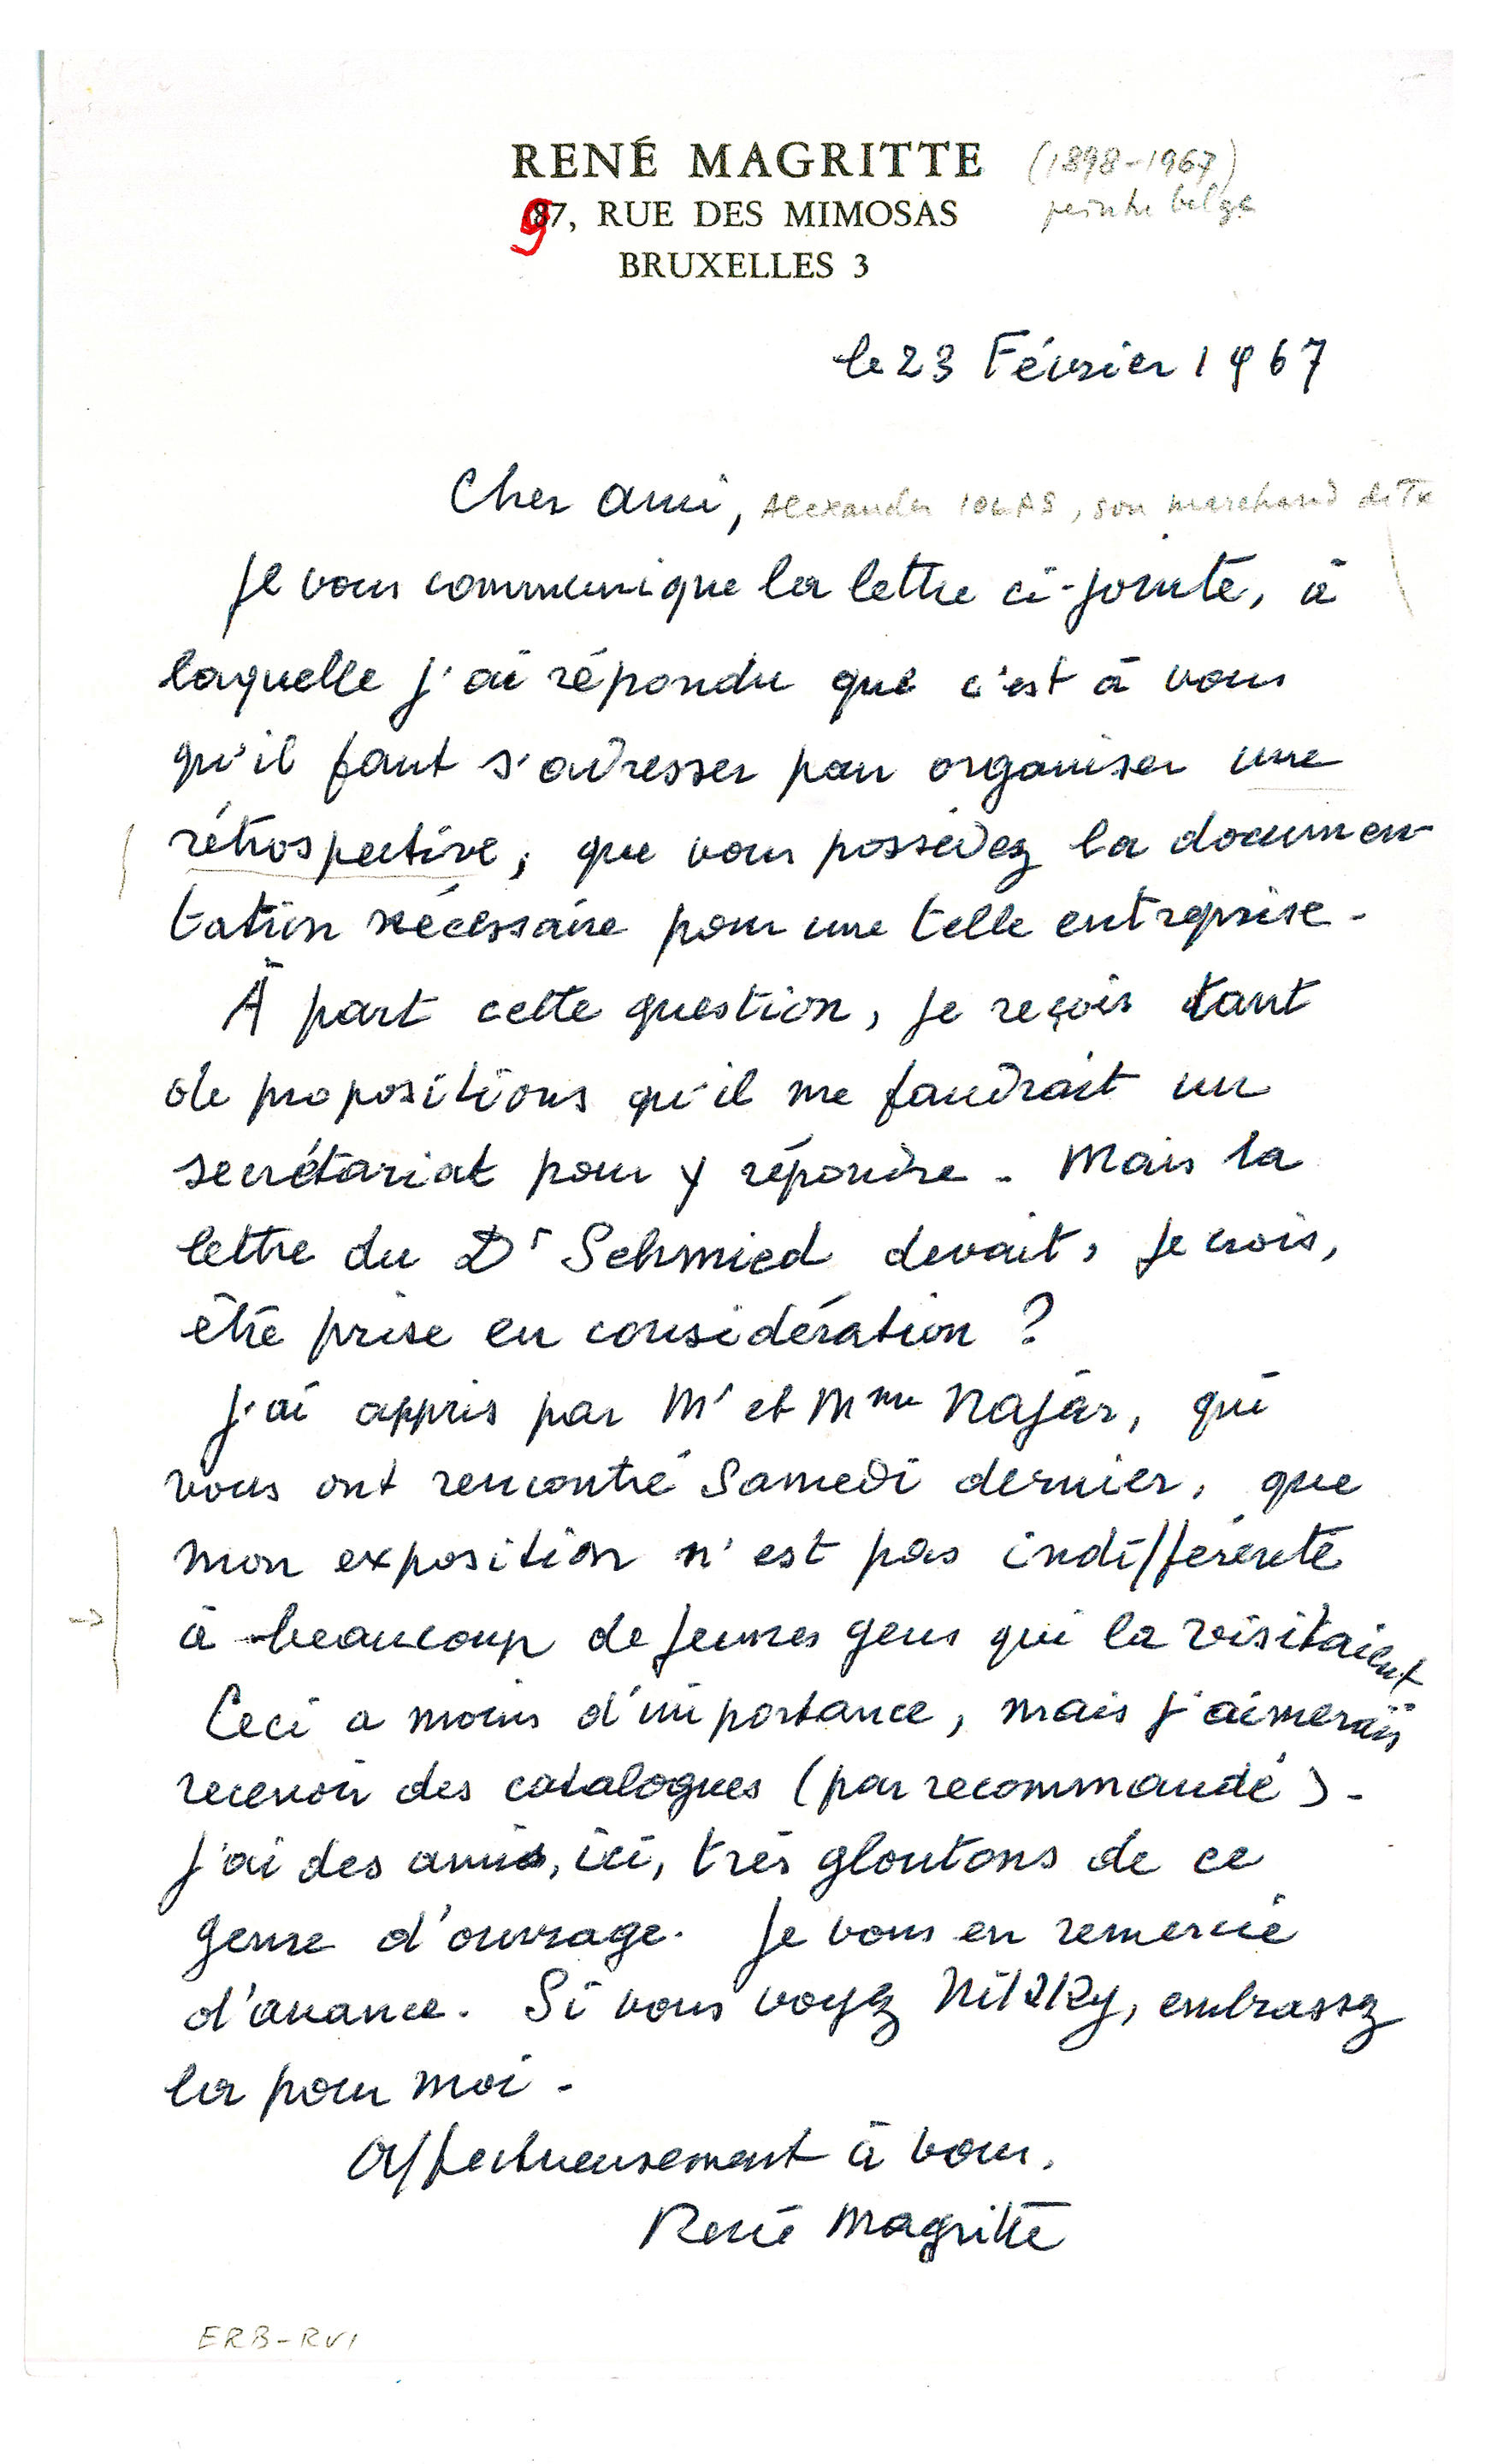 RENÉ MAGRITTE (1898-1967)
97, RUE DES MIMOSAS peintre belge
BRUXELLES 3
le 23 Février 1967
Cher ami, Alexander IOLAS, son marchand
Je vous communique la lettre ci-jointe, à
laquelle j'ai répondu que c'est à vous
qu'il faut s'adresser pour organiser une
rétrospective, que vous possédez la documen-
tation nécessaire pour une telle entreprise.
À part cette question, je reçois tant
de propositions qu'il me faudrait un
secrétariat pour y répondre. Mais la
lettre du Dr Schmied devait, je crois,
être prise en considération ?
J'ai appris par Mr et Mme Najar, qui
vous ont rencontré Samedi dernier, que
mon exposition n'est pas indifférente
à beaucoup de jeunes gens qui la visitaient
Ceci a moins d'importance, mais j'aimerais
recevoir des catalogues (par recommandé).
J'ai des amis, ici, très gloutons de ce
genre d'ouvrage. Je vous en remercie
d'avance. Si vous voyez embrassez
la pour moi.
Affectueusement à vous.
René Magritte
ERB-RVI